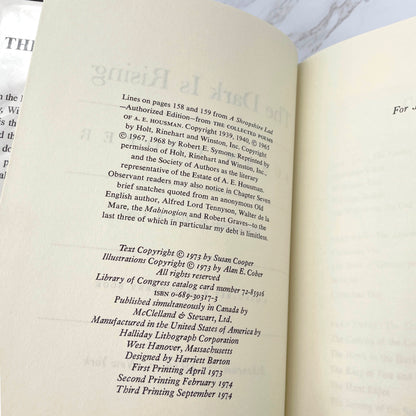 TH
The Dark Is Rising
Lines on pages 158 and 159 from A Shropshire Lad
—Authorized Edition—from THE COLLECTED POEMS
OF A. E. HOUSMAN. Copyright 1939, 1940, © 1965
by Holt, Rinehart and Winston, Inc. Copyright
© 1967, 1968 by Robert E. Symons. Reprinted by
permission of Holt, Rinehart and Winston, Inc.,
and the Society of Authors as the literary
representative of the Estate of A. E. Housman.
Observant readers may also notice in Chapter Seven
brief snatches quoted from an anonymous Old
English author, Alfred Lord Tennyson, Walter de la
Mare, the Mabinogion and Robert Graves—to the
last three of which in particular my debt is limitless.
Text Copyright © 1973 by Susan Cooper
Illustrations Copyright © 1973 by Alan E. Cober
All rights reserved
Library of Congress catalog card number 72-85916
ISBN 0-689-30317-3
Published simultaneously in Canada by
McClelland & Stewart, Ltd.
Manufactured in the United States of America by
Halliday Lithograph Corporation
West Hanover, Massachusetts
Designed by Harriett Barton
First Printing April 1973
Second Printing February 1974
Third Printing September 1974
For J